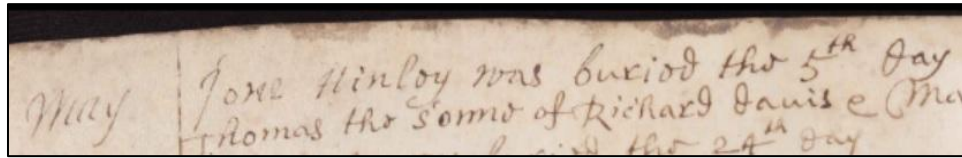 May
Jone Hinley was buried the 5th day
Thomas the sonne of Richard Davis & Ma
buried the 24th day